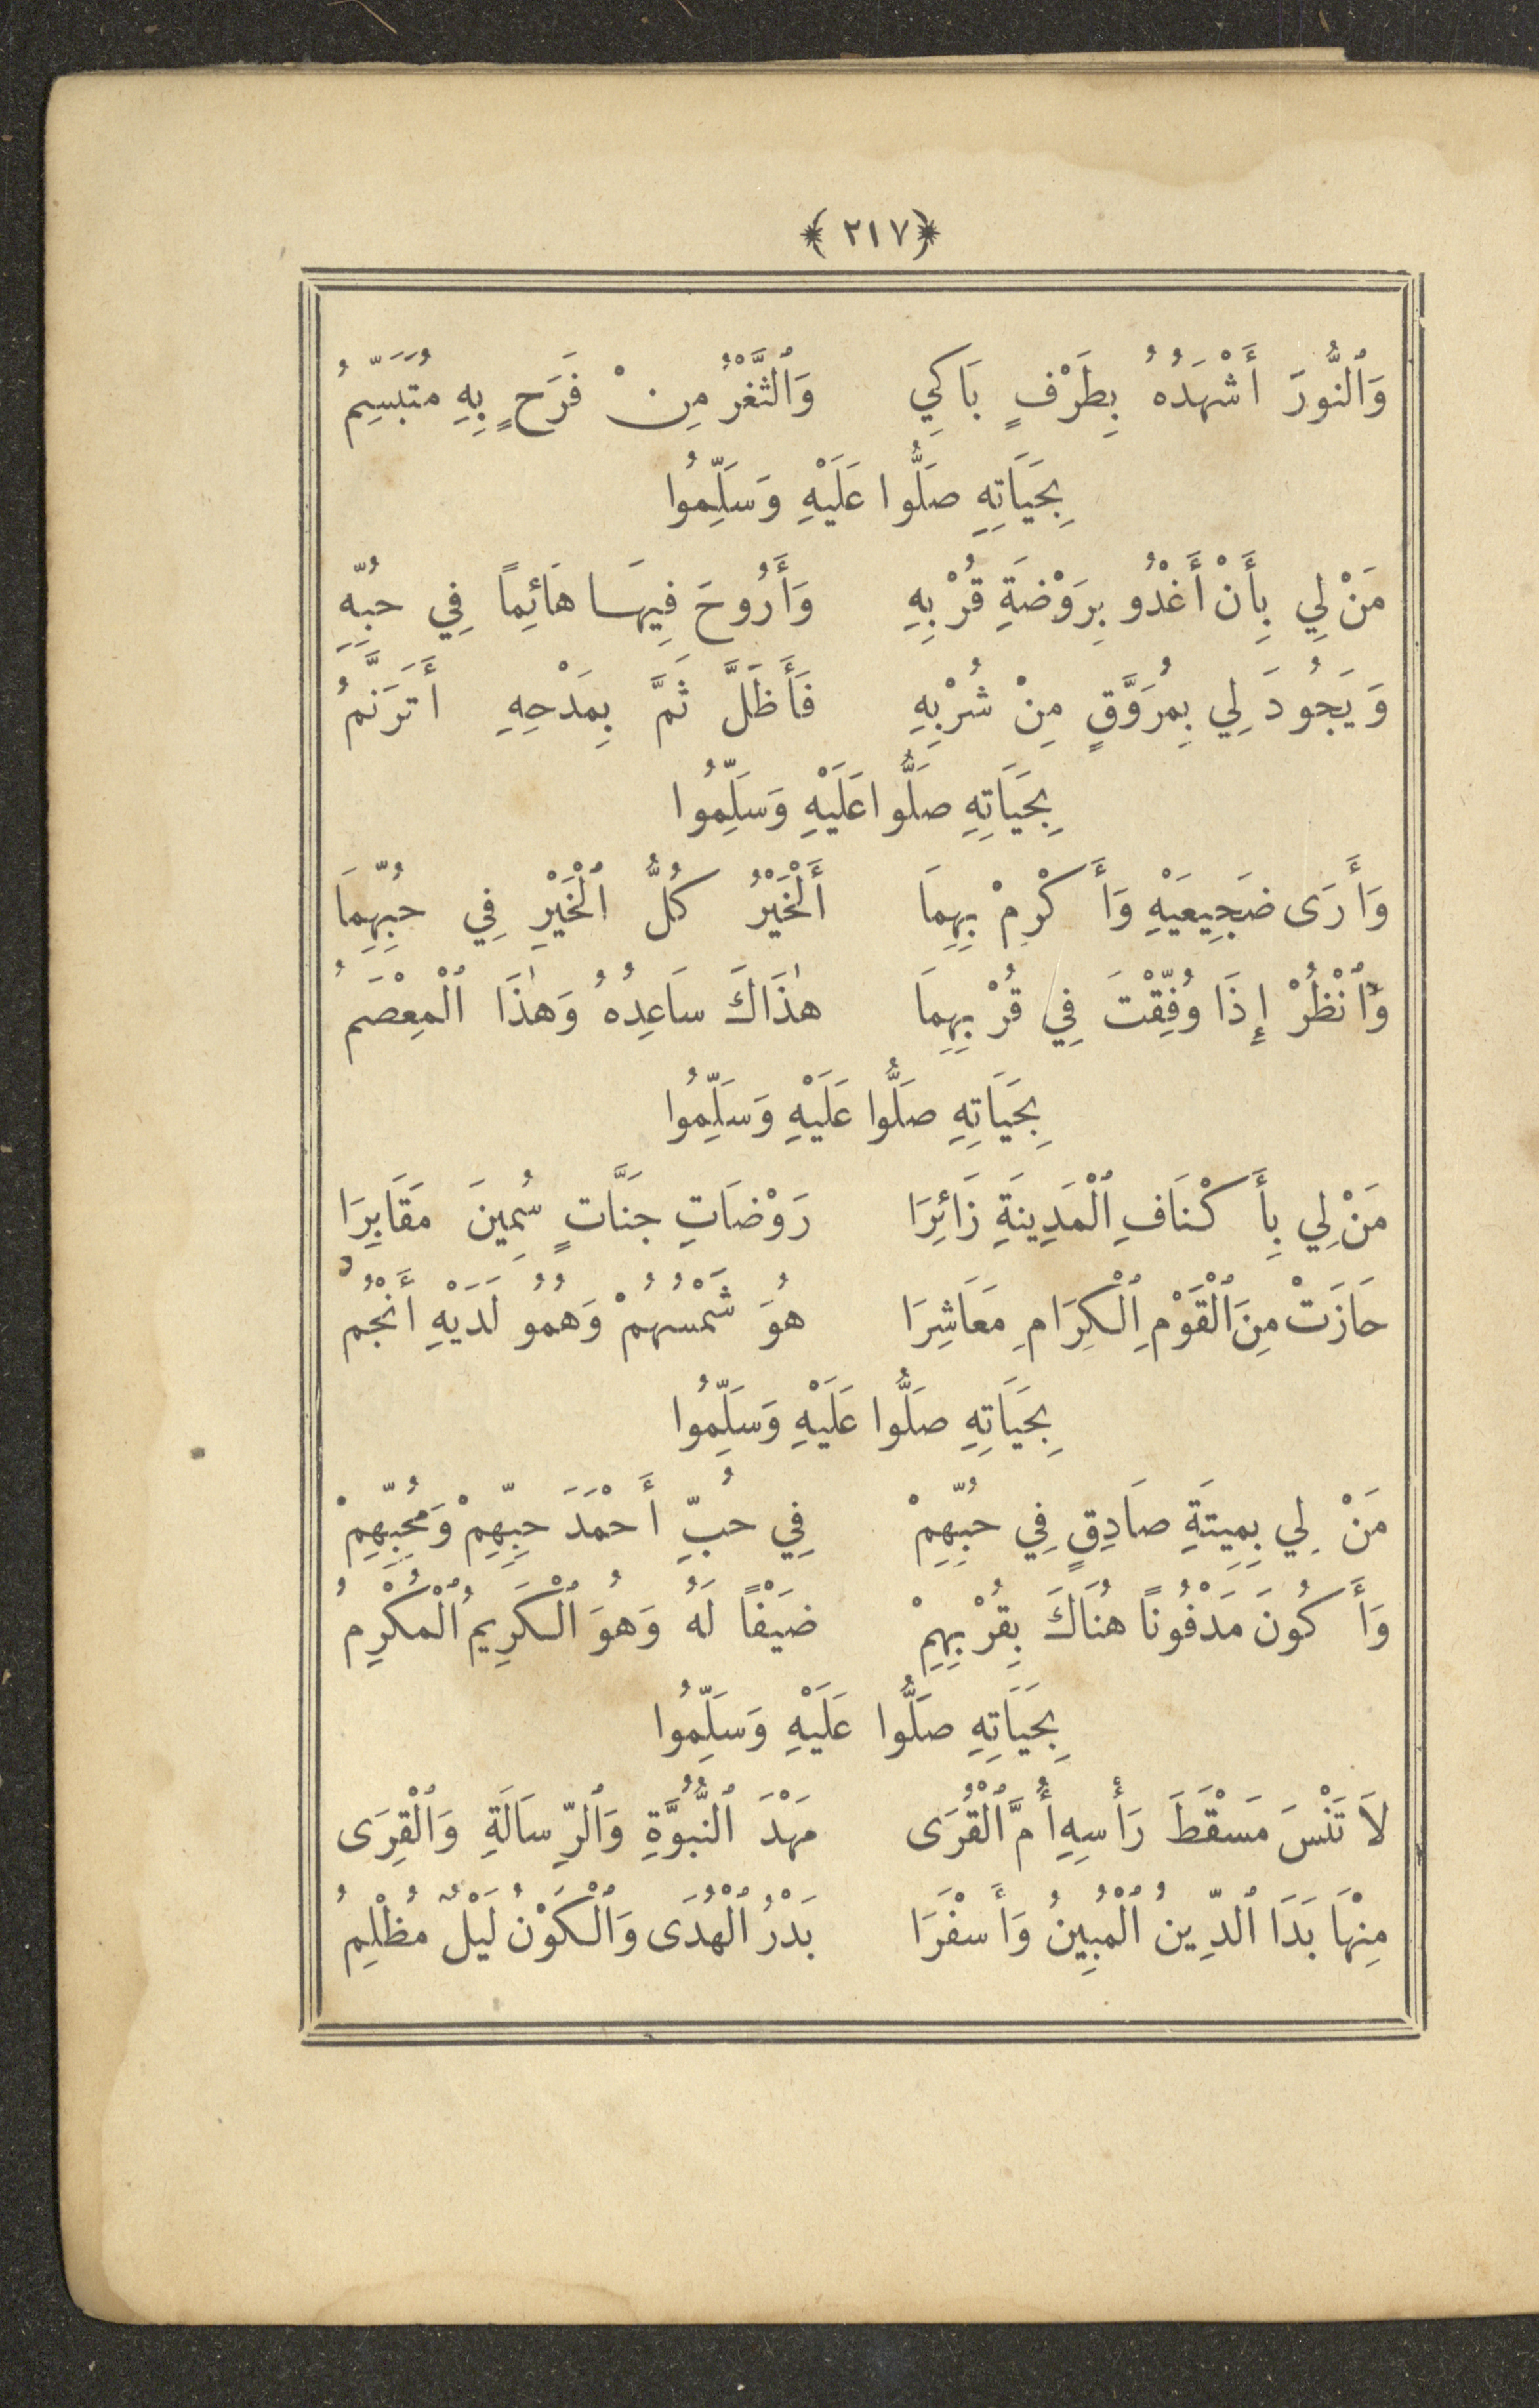 ﴿ ٢١٧ ﴾
وَٱلنُّورَ أَشْهَدُهُ بِطَرْفٍ بَاكِي وَٱلثَّغْرُ مِنْ فَرَحٍ بِهِ مُتَبَسِّمُ
بِحَيَاتِهِ صَلُّوا عَلَيْهِ وَسَلِّمُوا
مَنْ لِي بِأَنْ أَغْدُو بِرَوْضَةِ قُرْبِهِ وَأَرُوحَ فِيهَا هَائِمًا فِي حُبِّهِ
وَيَجُودَ لِي بِمُرَوَّقٍ مِنْ شُرْبِهِ فَأَظَلَّ ثَمَّ بِمَدْحِهِ أَتَرَنَّمُ
بِحَيَاتِهِ صَلُّوا عَلَيْهِ وَسَلِّمُوا
وَأَرَى ضَجِيعَيْهِ وَأَكْرِمْ بِهِمَا أَلْخَيْرُ كُلُّ ٱلْخَيْرِ فِي حُبِّهِمَا
وَٱنْظُرْ إِذَا وُفِّقْتَ فِي قُرْبِهِمَا هٰذَاكَ سَاعِدُهُ وَهٰذَا ٱلْمِعْصَمُ
بِحَيَاتِهِ صَلُّوا عَلَيْهِ وَسَلِّمُوا
مَنْ لِي بِأَكْنَافِ ٱلْمَدِينَةِ زَائِرَا رَوْضَاتِ جَنَّاتٍ سُمِينَ مَقَابِرَا
حَازَتْ مِنَ ٱلْقَوْمِ ٱلْكِرَامِ مَعَاشِرَا هُوَ شَمْسُهُمْ وَهُمُو لَدَيْهِ أَنْجُمُ
بِحَيَاتِهِ صَلُّوا عَلَيْهِ وَسَلِّمُوا
مَنْ لِي بِمِيتَةِ صَادِقٍ فِي حُبِّهِمْ فِي حُبِّ أَحْمَدَ حِبِّهِمْ وَمُحِبِّهِمْ
وَأَكُونَ مَدْفُونًا هُنَاكَ بِقُرْبِهِمْ ضَيْفًا لَهُ وَهُوَ ٱلْكَرِيمُ ٱلْمُكْرِمُ
بِحَيَاتِهِ صَلُّوا عَلَيْهِ وَسَلِّمُوا
لَا تَنْسَ مَسْقَطَ رَأْسِهِ أُمَّ ٱلْقُرَى مَهْدَ ٱلنُّبُوَّةِ وَٱلرِّسَالَةِ وَٱلْقِرَى
مِنْهَا بَدَا ٱلدِّينُ ٱلْمُبِينُ وَأَسْفَرَا بَدْرُ ٱلْهُدَى وَٱلْكَوْنُ لَيْلٌ مُظْلِمُ